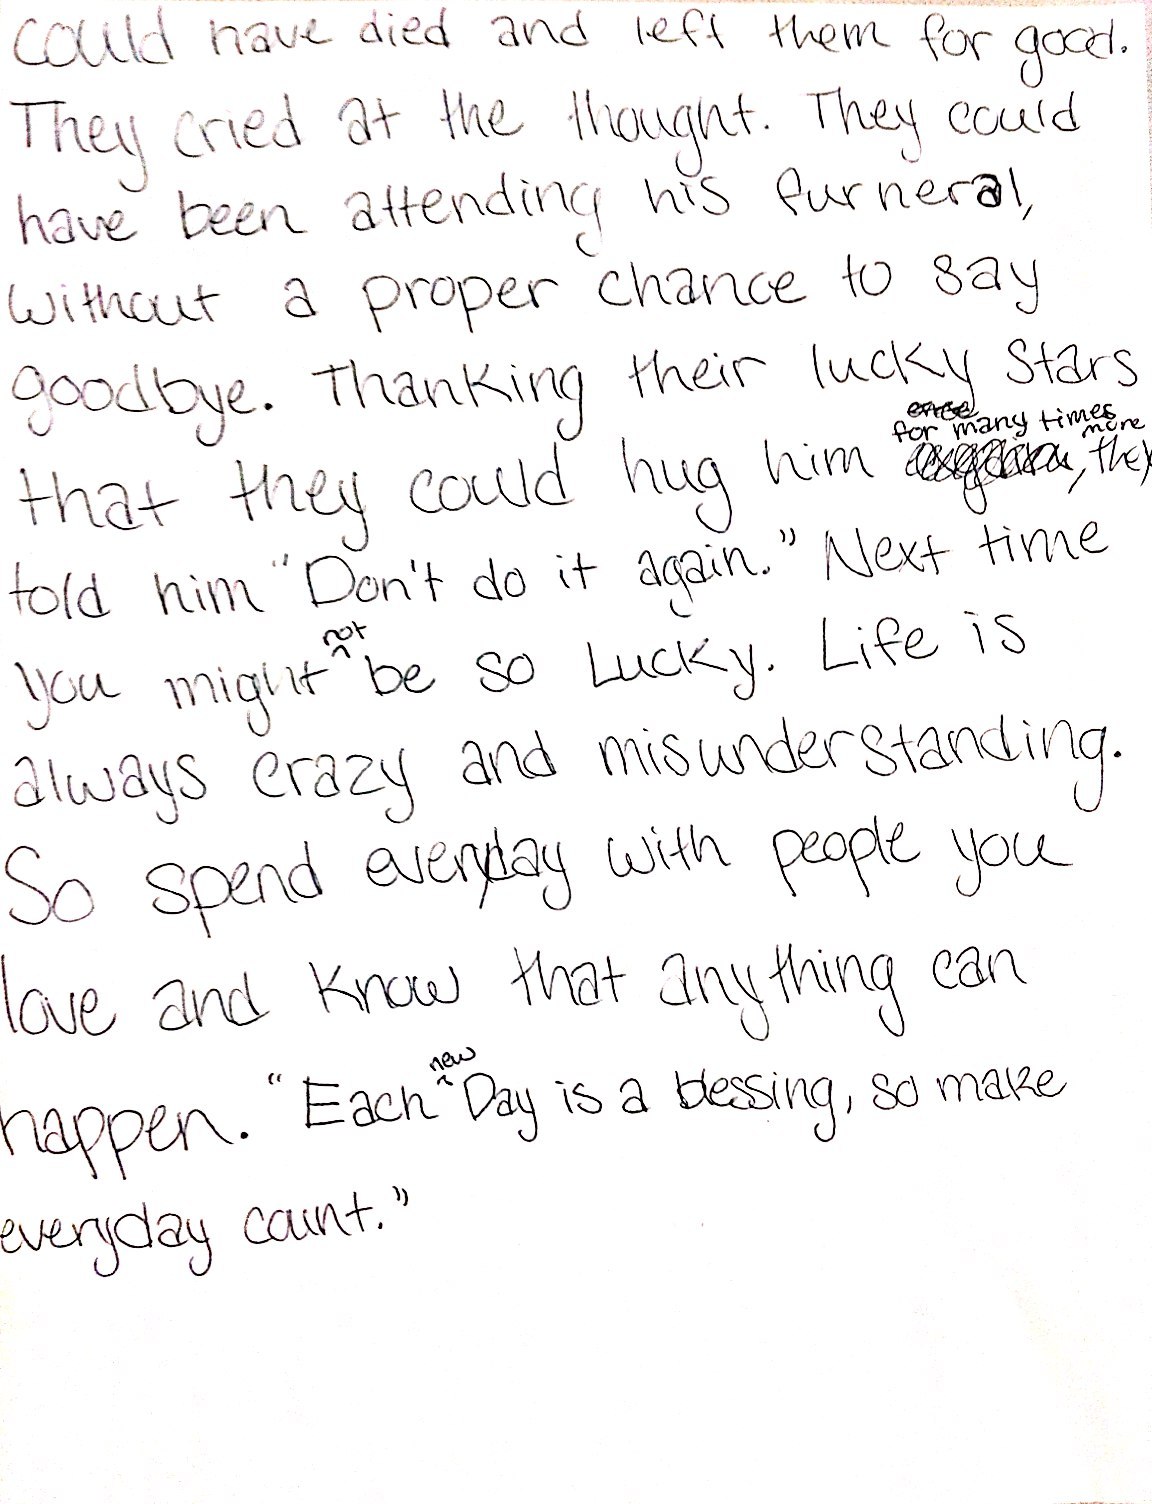 could have died and left them for good.
They cried at the thought. They could
have been attending his furneral,
without a proper chance to say
goodbye. Thanking their lucky stars
that they could hug him for many times more, they
told him "Don't do it again." Next time
you might not be so Lucky. Life is
always crazy and misunderstanding.
So spend everyday with people you
love and know that anything can
happen. "Each new Day is a blessing, so make
everyday count."